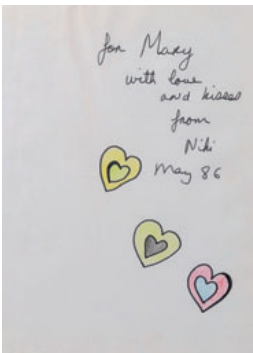 for Mary
with love
and kisses
from
Niki
May 86